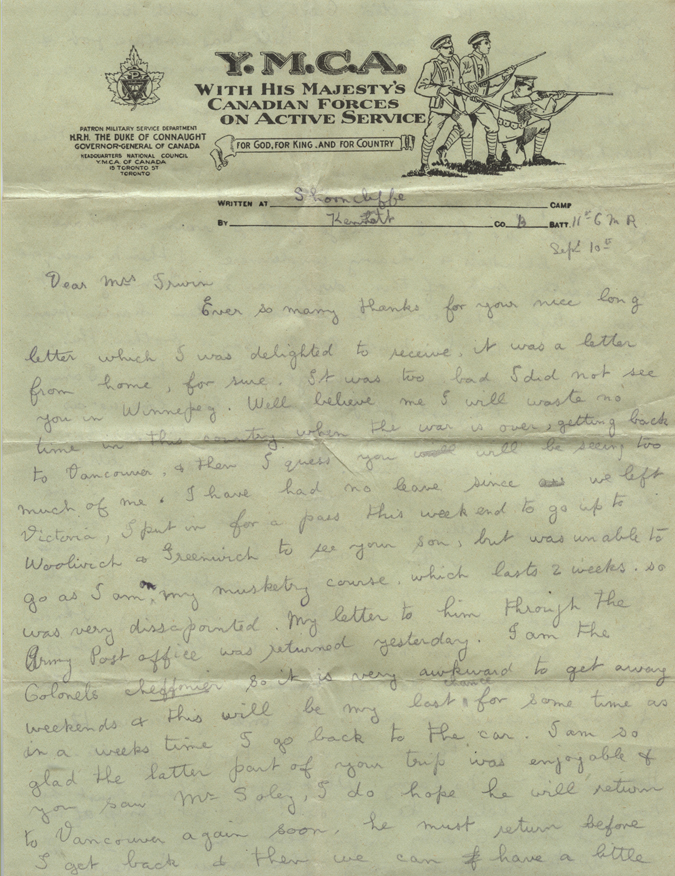 Y.M.C.A.
WITH HIS MAJESTY'S
CANADIAN FORCES
ON ACTIVE SERVICE
FOR GOD, FOR KING, AND FOR COUNTRY
PATRON MILITARY SERVICE DEPARTMENT
H.R.H. THE DUKE OF CONNAUGHT
GOVERNOR-GENERAL OF CANADA
HEADQUARTERS NATIONAL COUNCIL
Y.M.C.A. OF CANADA
15 TORONTO ST
TORONTO
WRITTEN AT Shorncliffe CAMP
BY CO. B BATT. 11th C M R
Sept 10th
Dear Mrs Irwin
Ever so many thanks for your nice long
letter which I was delighted to receive, it was a letter
from home, for sure. It was too bad I did not see
you in Winnepeg. Well believe me I will waste no
time in this country when the war is over, getting back
to Vancouver, & then I guess you will be seeing too
much of me. I have had no leave since we left
Victoria, I put in for a pass this week end to go up to
Woolwich & Greenwich to see your son, but was unable to
go as I am on my musketry course, which lasts 2 weeks. so
was very dissapointed. My letter to him through the
Army Post office was returned yesterday. I am the
Colonels cheffonier so it is very awkward to get away
weekends & this will be my last chance for some time as
in a weeks time I go back to the car. I am so
glad the latter part of your trip was enjoyable &
you saw Mr Soley, I do hope he will return
to Vancouver again soon, he must return before
I get back & then we can have a little